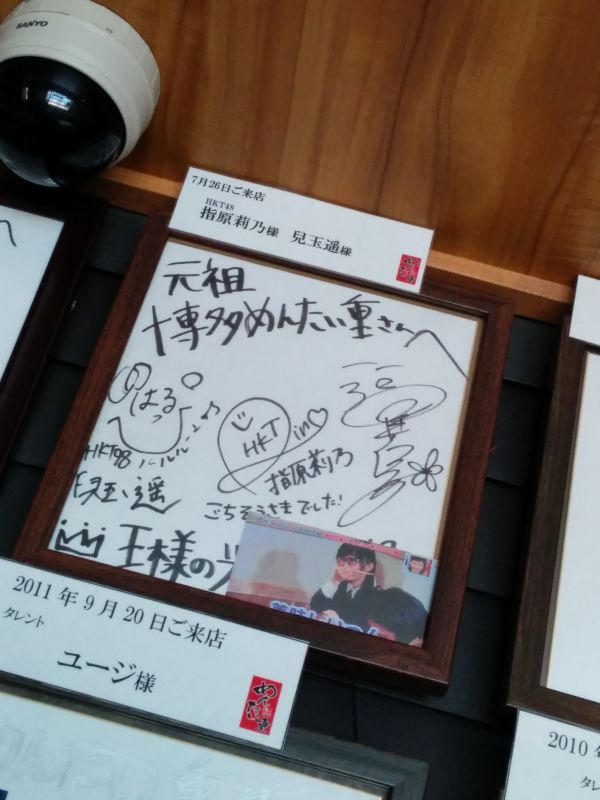 SANYO
7月26日ご来店
HKT48
指原莉乃様 兒玉遥様
元祖
博多めんたい重さんへ
はるっ
HKT
in♡
HKT48
指原莉乃
兒玉遥
ごちそうさまでした!
王様の
2011年9月20日ご来店
タレント
ユージ様
2010年
タレ